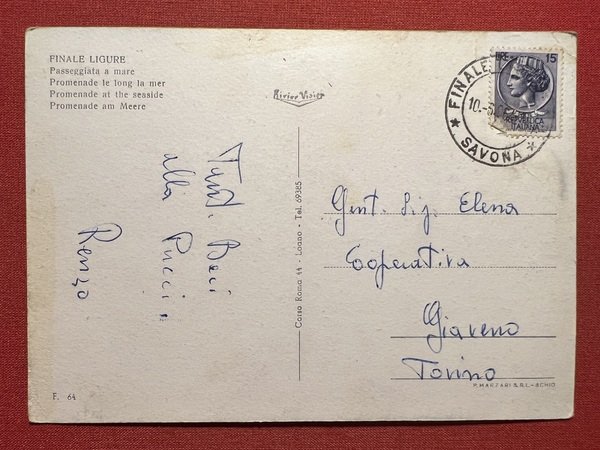 FINALE LIGURE
Passeggiata a mare
Promenade le long la mer
Promenade at the seaside
Promenade am Meere
Rivier Vision
LIRE 15
REPUBBLICA
ITALIANA
FINALE
10.-
★ SAVONA ★
Tant. Baci
alla Pucci
Renzo
Corso Roma 44 - Loano - Tel. 69385
Gent. Sig. Elena
Cooperativa
Giaveno
Torino
P. MARZARI S.R.L.-SCHIO
F. 64